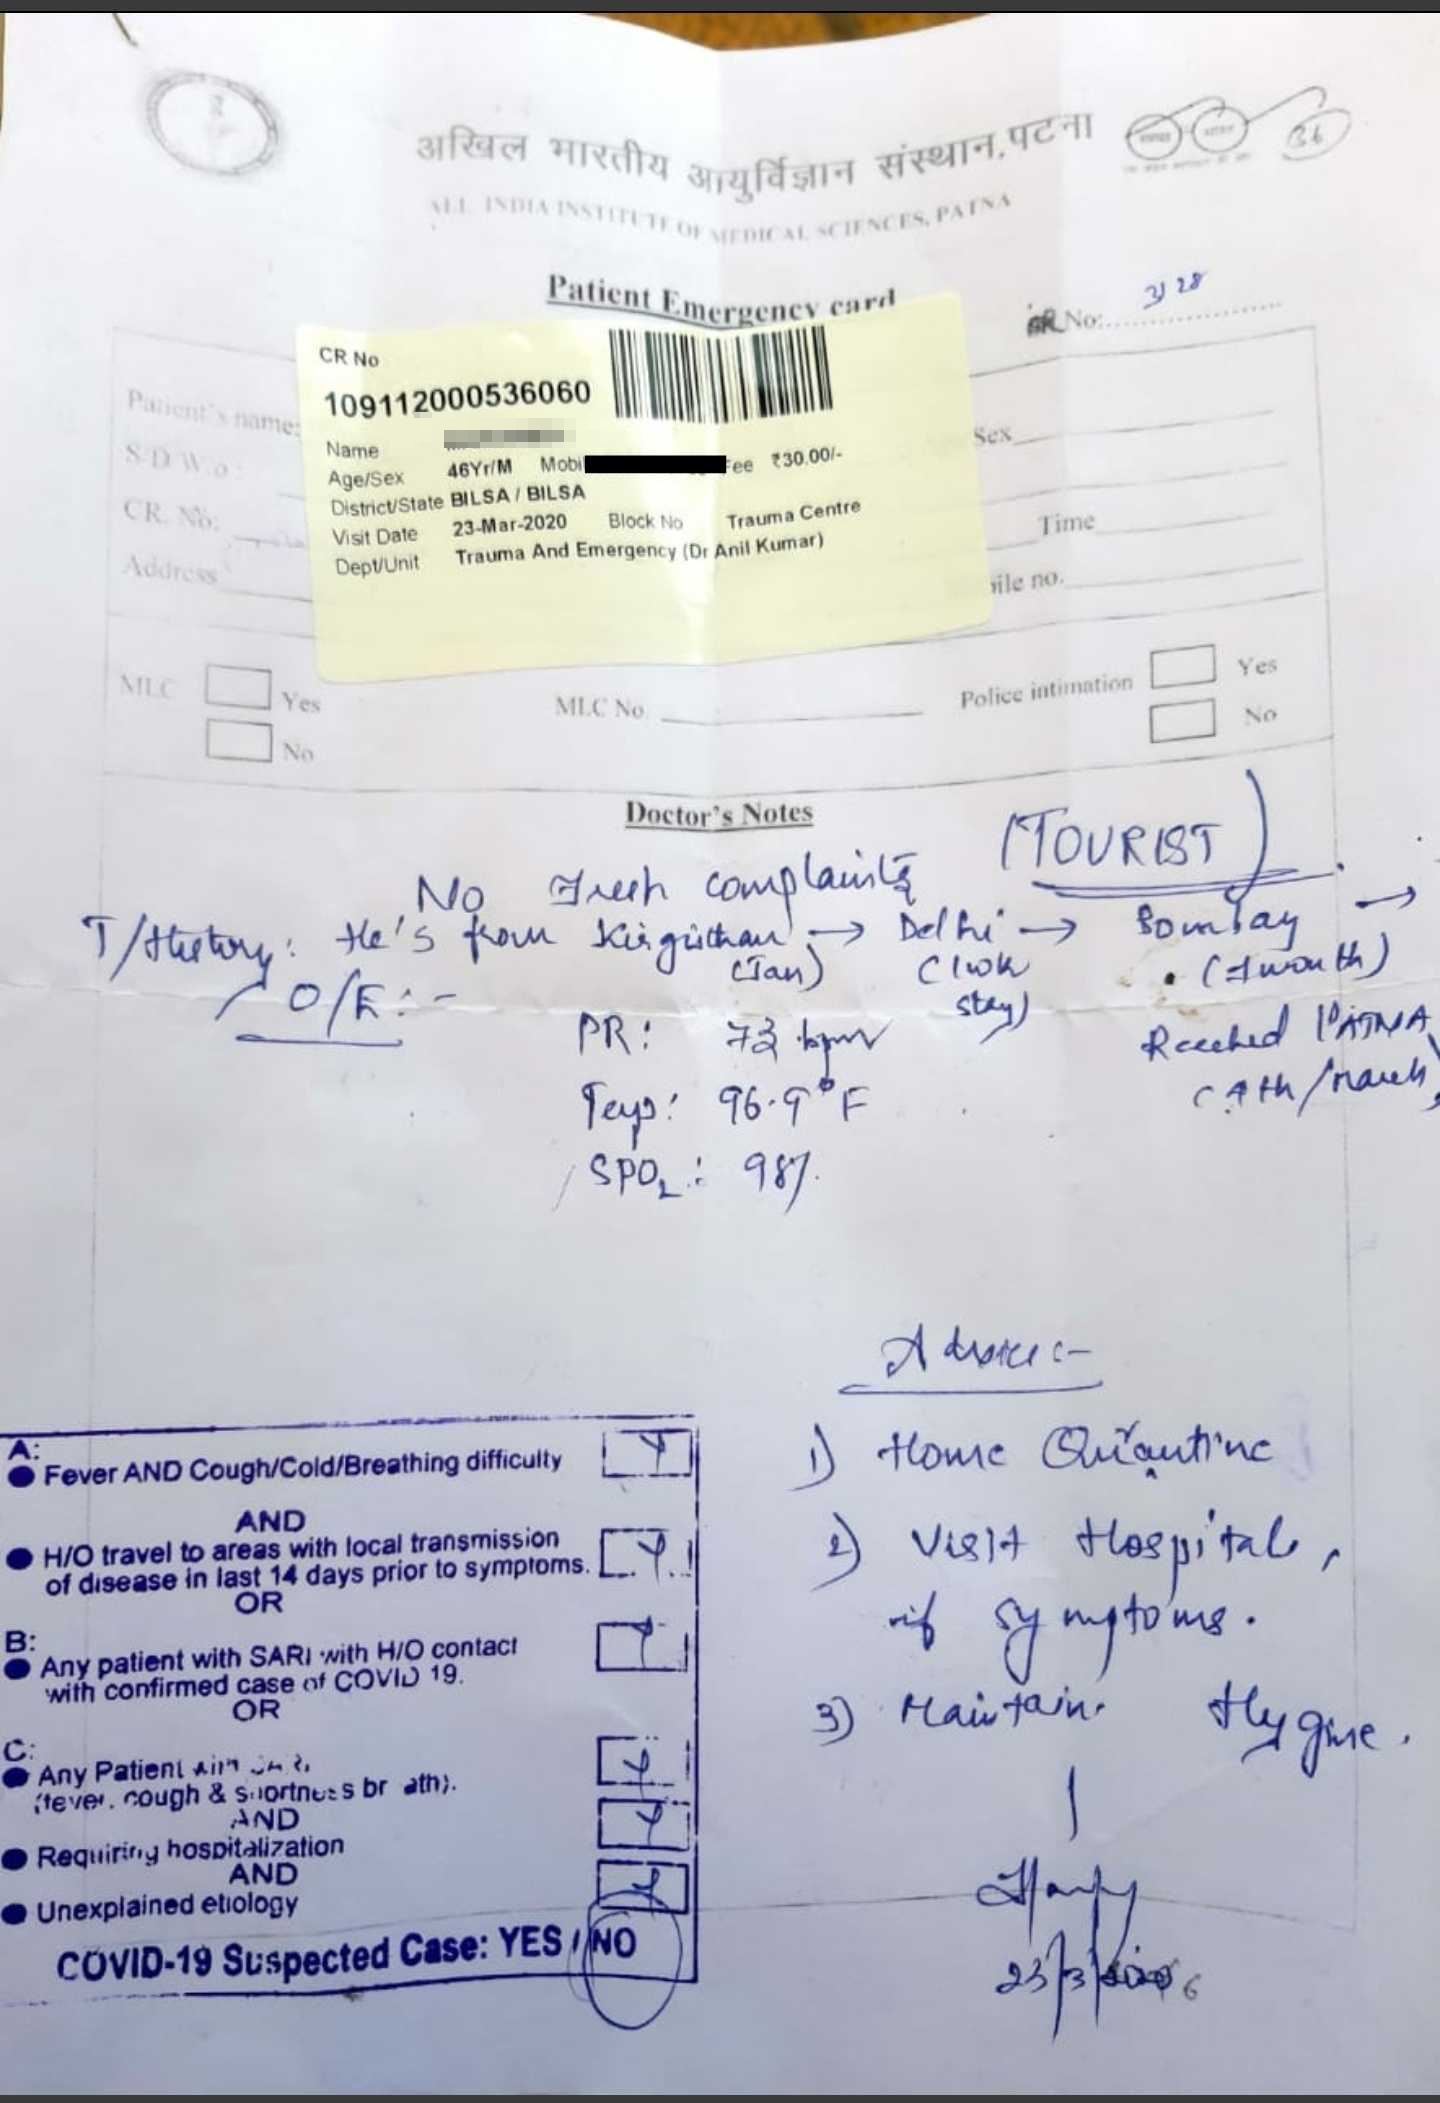 अखिल भारतीय आयुर्विज्ञान संस्थान, पटना
36
ALL INDIA INSTITUTE OF MEDICAL SCIENCES, PATNA
Patient Emergency card
No: 3128
CR No
109112000536060
Patient's name:
Name
Age/Sex 46Yr/M Mobi Fee ₹30.00/-
Sex
S/D/W/o:
District/State BILSA / BILSA
CR. No:
Visit Date 23-Mar-2020 Block No Trauma Centre
Time
Dept/Unit Trauma And Emergency (Dr Anil Kumar)
Address
bile no.
MLC Yes
No
MLC No.
Police intimation Yes
No
Doctor's Notes
(TOURIST)
No Fresh complaints
T/History: He's from Kirgisthan → Delhi → Bombay →
(Jan) (1wk stay) (1 month)
Reached PATNA
O/E:-
PR: 73 bpm
Temp: 96.9°F
SPO2: 98%
Advice:-
1) Home Qurantine
2) Visit Hospital,
if symptoms.
3) Maintain Hygine.
23/3/2020
A:
Fever AND Cough/Cold/Breathing difficulty
AND
H/O travel to areas with local transmission
of disease in last 14 days prior to symptoms.
OR
B:
Any patient with SARI with H/O contact
with confirmed case of COVID 19.
OR
C:
Any Patient
(fever, cough & shortness breath).
AND
Requiring hospitalization
AND
Unexplained etiology
COVID-19 Suspected Case: YES / NO